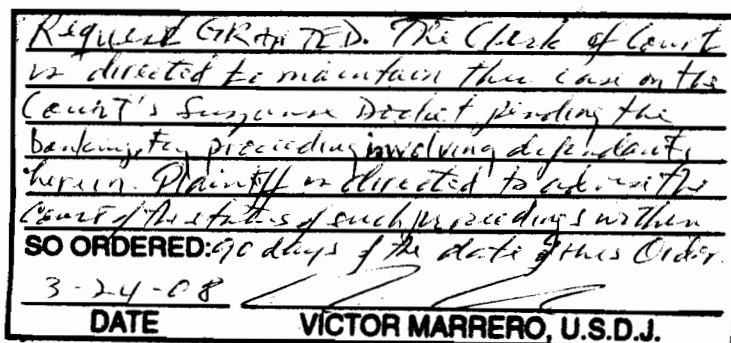 Request GRANTED. The Clerk of Court
is directed to maintain this case on the
Court's Suspense Docket pending the
bankruptcy proceeding involving defendants
herein. Plaintiff is directed to advise the
Court of the status of such proceedings within
SO ORDERED: 90 days of the date of this Order.
3-24-08
DATE VICTOR MARRERO, U.S.D.J.